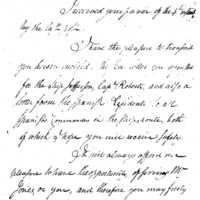 I received your favor of the
by the Capt.
I have the pleasure to transmit
you herein inclosed the Sea letter you wrote
for the Ship Jefferson, Capt. Roberts, and also a
letter from the Spanish Resident to all
Spanish Commanders in the Ship's route, both
of which I hope you will receive safely.
It will always afford me
pleasure to have the opportunity of serving Mr
Jones, or you, and therefore you may freely